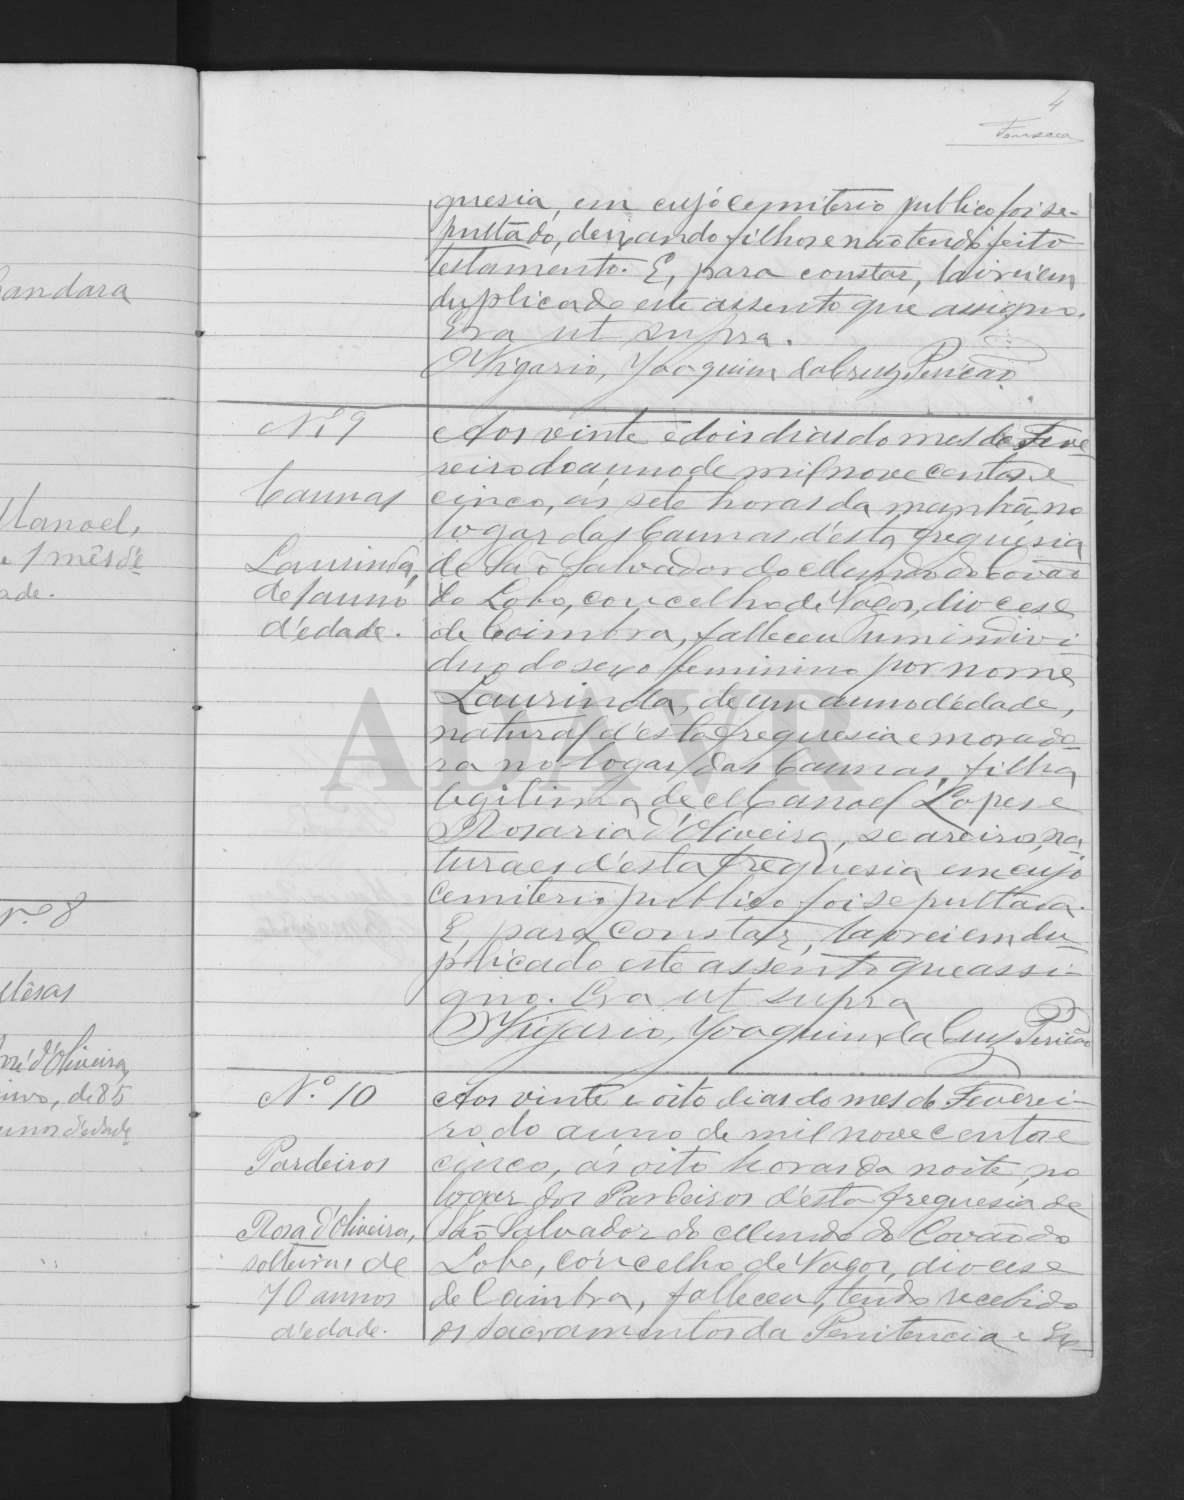 4
Fonseca
andara
Manoel,
1 mês d'e
ade.
N.º 8
José d'Oliveira,
de 85
annos d'edade
guesia, em cujo cemiterio publico foi se-
pultado, deixando filhos e não tendo feito
testamento. E, para constar, lavrei em
duplicado este assento que assigno.
Era ut supra.
O Vigario, Joaquim da Cruz Pericão
Nº 9
Cannas
Laurinda,
de 1 anno
d'edade.
Aos vinte e dois dias do mes de Feve-
reiro do anno de mil nove centos e
cinco, ás sete horas da manhã, no
logar das Cannas, d'esta freguesia
de São Salvador do Mundo do Covão
do Lobo, concelho de Vagos, diocese
de Coimbra, falleceu um indivi-
duo do sexo feminino por nome
Laurinda, de um anno d'edade,
natural d'esta freguesia e morado-
ra no logar das Cannas, filha
legitima de Manoel Lopes e
Rosaria d'Oliveira, seareiros, na-
turaes d'esta freguesia em cujo
cemiterio publico foi sepultada.
E, para constar, lavrei em du-
plicado este assento que assi-
gno. Era ut supra
O Vigario, Joaquim da Cruz Pericão
N.º 10
Pardeiros
Rosa d'Oliveira,
solteira, de
70 annos
d'edade.
Aos vinte e oito dias do mes de Feverei-
ro do anno de mil nove centos e
cinco, ás oito horas da noite, no
logar dos Pardeiros d'esta freguesia de
São Salvador do Mundo do Covão do
Lobo, concelho de Vagos, diocese
de Coimbra, falleceu, tendo recebido
os sacramentos da Penitencia e Ex-
ADAVR